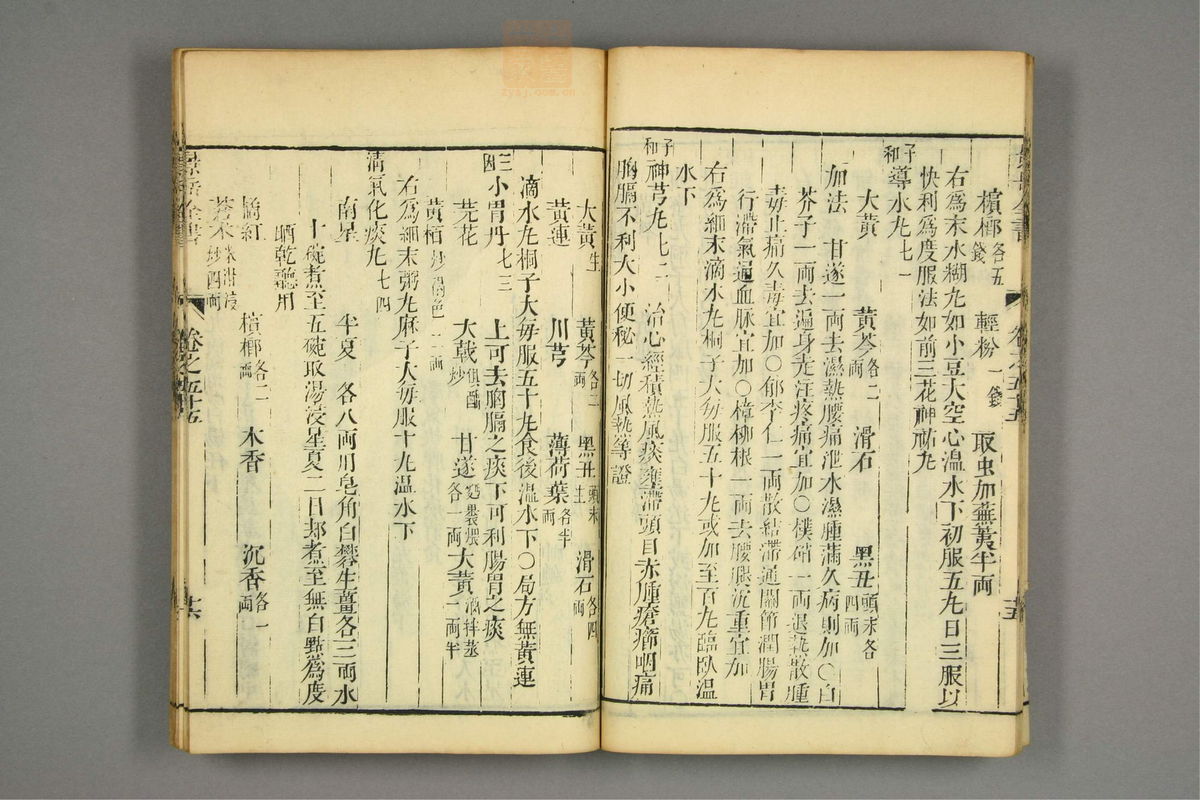 檳榔各五錢　輕粉一錢　取虫加蕪荑半両
右為末水糊丸如小豆大空心溫水下初服五丸日三服以
快利為度服法如前三花神祐丸
子和導水丸七一
大黃　黃芩各二両　滑石　黑丑頭末各四両
加法　甘遂一両去濕熱腰痛泄水濕腫滿久病則加〇白
芥子一両去遍身走注疼痛宜加〇樸硝一両退熱散腫
毒止痛久毒宜加〇郁李仁一両散結滯通關節潤腸胃
行滯氣通血脉宜加〇樟柳根一両去腰腿沉重宜加
右為細末滴水丸桐子大每服五十丸或加至百丸臨臥溫
水下
子和神芎丸七二　治心經積熱風痰壅滯頭目赤腫瘡癤咽痛
胸膈不利大小便秘一切風熱等證
大黃生　黃芩各二両　黑丑頭末生　滑石各四両
黃連　川芎　薄荷葉各半両
滴水丸桐子大每服五十丸食後溫水下〇局方無黃連
三因小胃丹七三　上可去胸膈之痰下可利腸胃之痰
芫花　大戟俱醋炒　甘遂麪裹煨各一両　大黃酒拌蒸一両半
黃栢炒褐色二両
右為細末粥丸麻子大每服十丸溫水下
清氣化痰丸七四
南星　半夏　各八両用皂角白礬生薑各三両水
十碗煮至五碗取湯浸星夏二日却煮至無白點為度
晒乾聽用
橘紅　檳榔各二両　木香　沉香各一両
蒼朮米泔浸炒四両
景岳全書　卷之五十五　廿六
卷之五十五　廿五
zysj.com.cn